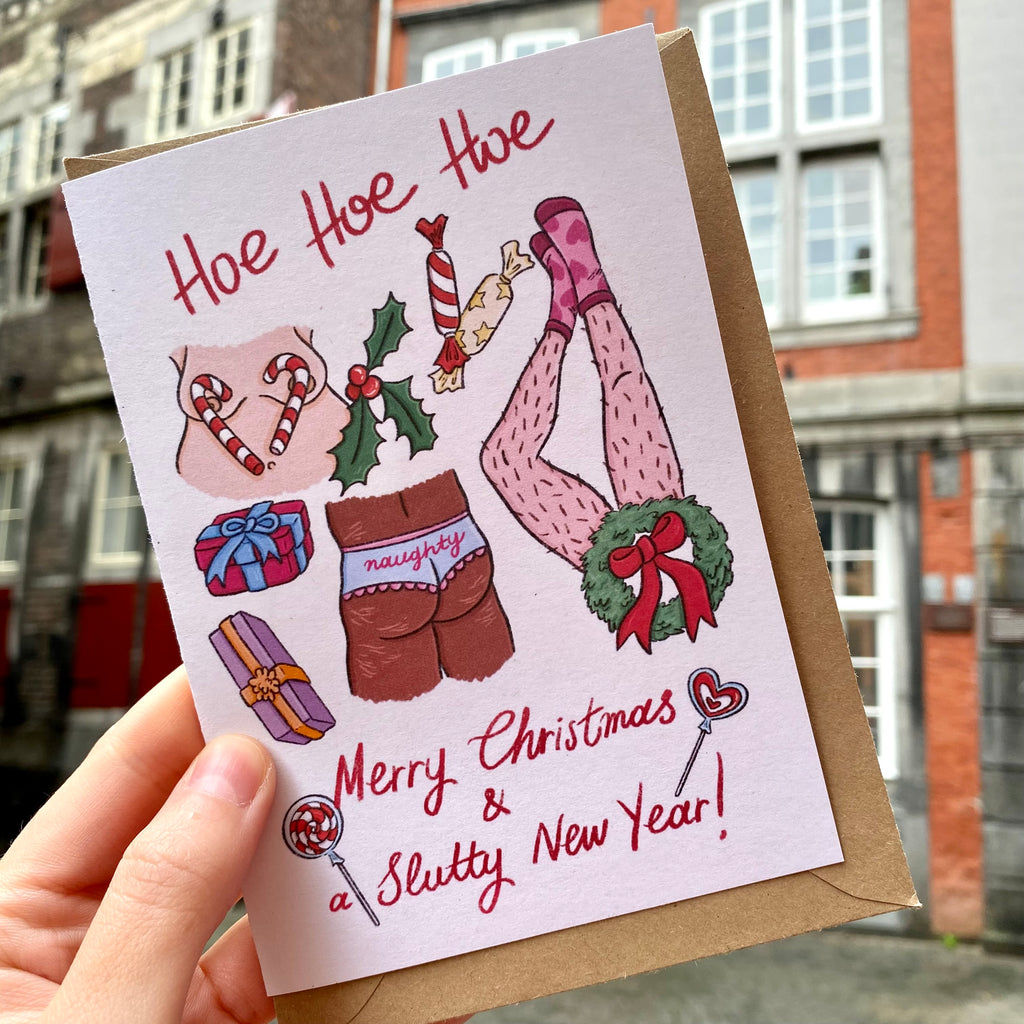 Hoe Hoe Hoe
naughty
Merry Christmas
&
a Slutty New Year!